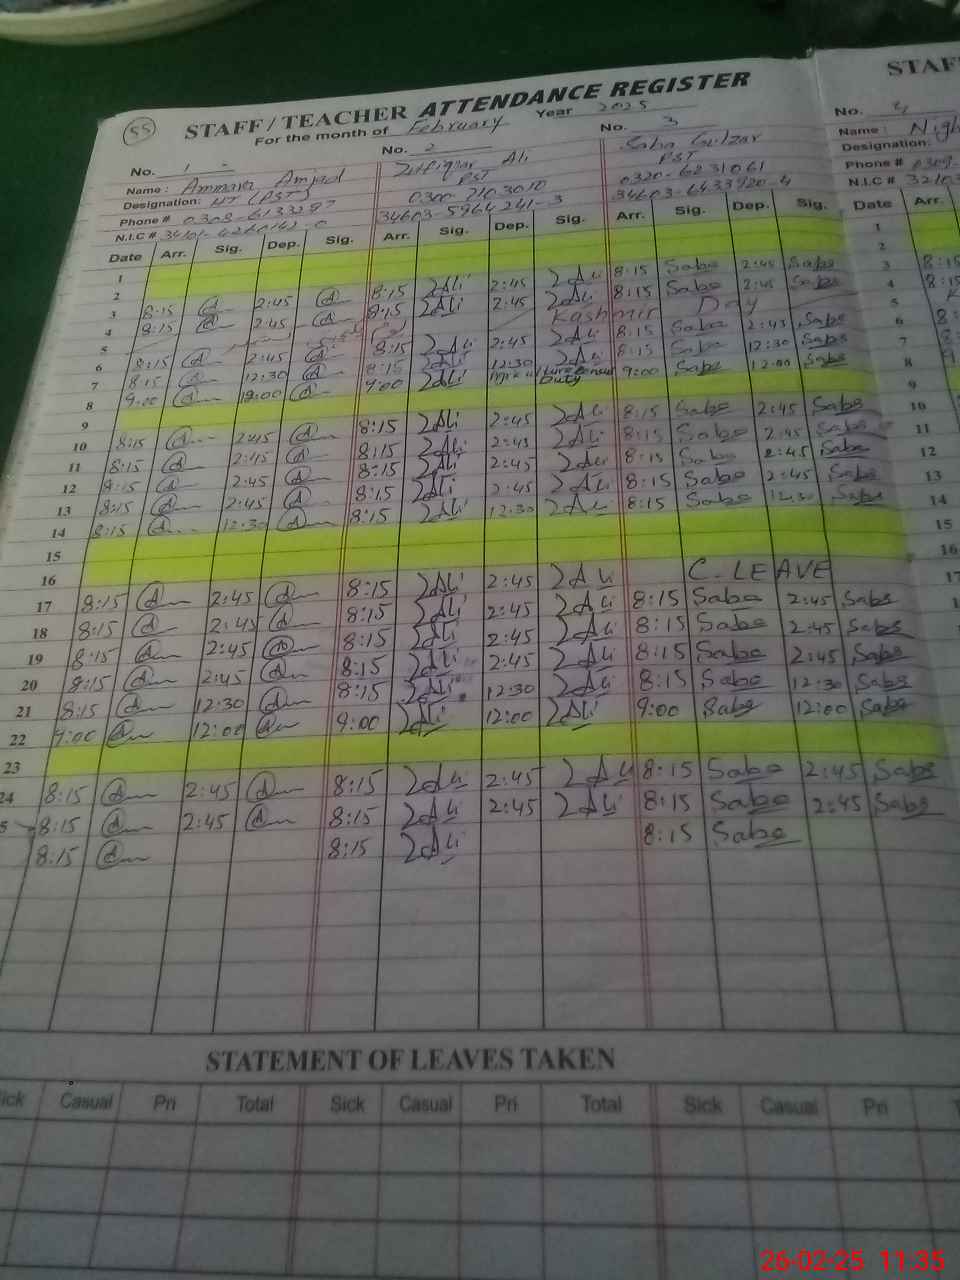 55
STAFF/TEACHER ATTENDANCE REGISTER STAF
For the month of February Year 2025
No. 1 No. 2 No. 3 No.
Name: Ammara Amjad Zulfiqar Ali Saba Gulzar Name:
Designation: HT (PST) PST PST Designation:
Phone # 0308-6133297 0300-7103010 0320-6231061 Phone # 0309-
N.I.C # 34603-5964241-3 34603-6433920-4 N.I.C #
Date Arr. Sig. Dep. Sig. Arr. Sig. Dep. Sig. Arr. Sig. Dep. Sig. Date Arr.
1 1
2 2
3 8:15 2:45 8:15 ZAli 2:45 ZAli 8:15 Saba 2:45 Saba 3 8:15
4 8:15 2:45 8:15 ZAli 2:45 ZAli 8:15 Saba 2:45 Saba 4 8:15
5 Kashmir Day 5
6 8:15 2:45 8:15 ZAli 2:45 ZAli 8:15 Saba 2:45 Saba 6
7 8:15 12:30 8:15 ZAli 12:30 ZAli 8:15 Saba 12:30 Saba 7
8 9:00 12:00 9:00 ZAli Agriculture Census Duty 9:00 Saba 12:00 Saba 8
9 9
10 8:15 2:45 8:15 ZAli 2:45 ZAli 8:15 Saba 2:45 Saba 10
11 8:15 2:45 8:15 ZAli 2:45 ZAli 8:15 Saba 2:45 Saba 11
12 8:15 2:45 8:15 ZAli 2:45 ZAli 8:15 Saba 2:45 Saba 12
13 8:15 2:45 8:15 ZAli 2:45 ZAli 8:15 Saba 2:45 Saba 13
14 8:15 12:30 8:15 ZAli 12:30 ZAli 8:15 Saba 12:30 Saba 14
15 15
16 16
17 8:15 2:45 8:15 ZAli 2:45 ZAli C. LEAVE 17
18 8:15 2:45 8:15 ZAli 2:45 ZAli 8:15 Saba 2:45 Saba
19 8:15 2:45 8:15 ZAli 2:45 ZAli 8:15 Saba 2:45 Saba
20 8:15 2:45 8:15 ZAli 2:45 ZAli 8:15 Saba 2:45 Saba
21 8:15 12:30 8:15 ZAli 12:30 ZAli 8:15 Saba 12:30 Saba
22 9:00 12:00 9:00 ZAli 12:00 ZAli 9:00 Saba 12:00 Saba
23
24 8:15 2:45 8:15 ZAli 2:45 ZAli 8:15 Saba 2:45 Saba
5 8:15 2:45 8:15 ZAli 2:45 ZAli 8:15 Saba 2:45 Saba
8:15 8:15 ZAli 8:15 Saba
STATEMENT OF LEAVES TAKEN
ick Casual Pri Total Sick Casual Pri Total Sick Casual Pri T
26-02-25 11:35